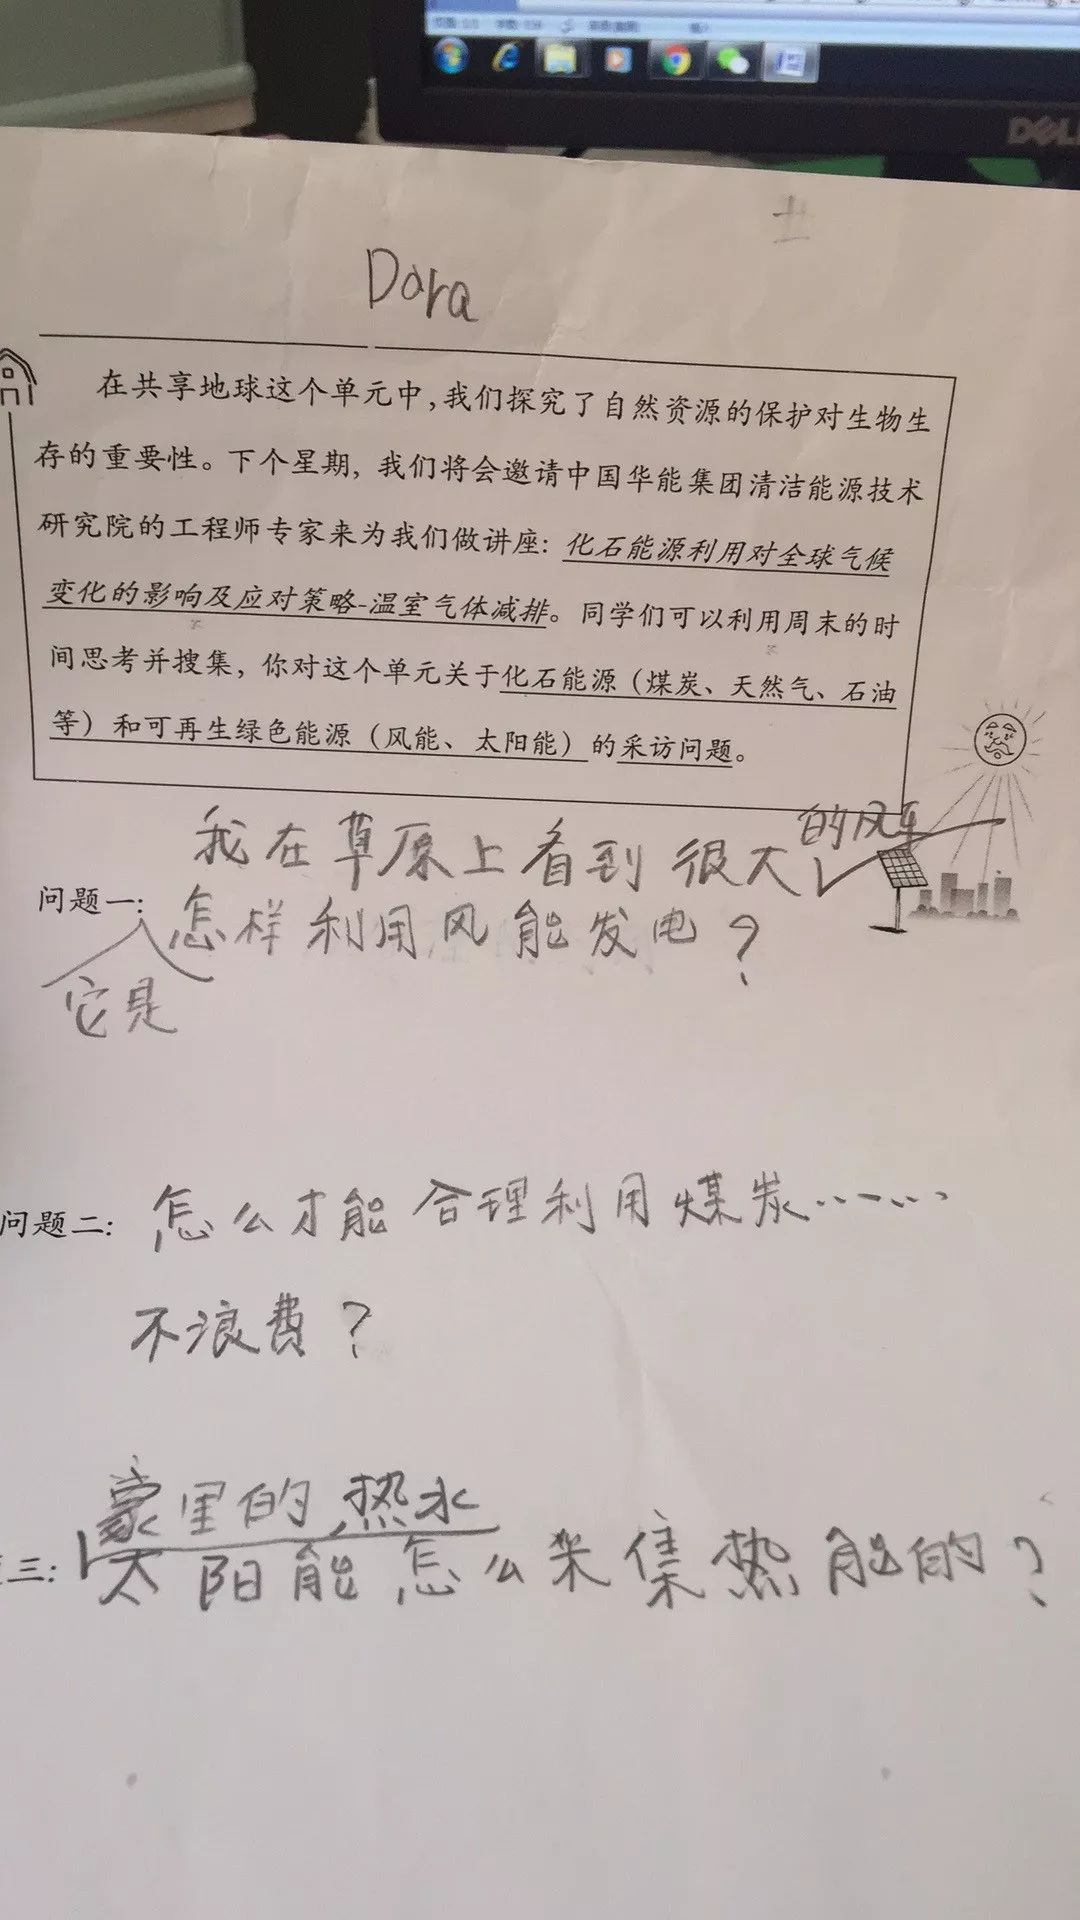 DELL
Dora
在共享地球这个单元中,我们探究了自然资源的保护对生物生
存的重要性。下个星期,我们将会邀请中国华能集团清洁能源技术
研究院的工程师专家来为我们做讲座:化石能源利用对全球气候
变化的影响及应对策略-温室气体减排。同学们可以利用周末的时
间思考并搜集,你对这个单元关于化石能源(煤炭、天然气、石油
等)和可再生绿色能源(风能、太阳能)的采访问题。
的风车
我在草原上看到很大
问题一:怎样利用风能发电?
它是
问题二:怎么才能合理利用煤炭……
不浪费?
家里的热水
三:太阳能怎么采集热能的?